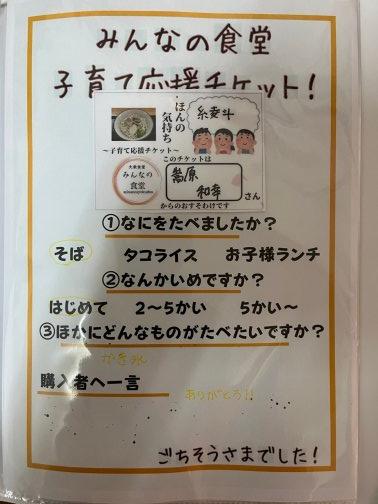 みんなの食堂
子育て応援チケット!
ほんの
気持ち
~子育て応援チケット~
このチケットは
大衆食堂
みんなの
食堂
和幸
さん
からのおすそわけです
①なにをたべましたか?
そば タコライス お子様ランチ
②なんかいめですか?
はじめて 2~5かい 5かい~
③ほかにどんなものがたべたいですか?
かき氷
購入者へ一言
ありがとう!!
ごちそうさまでした!